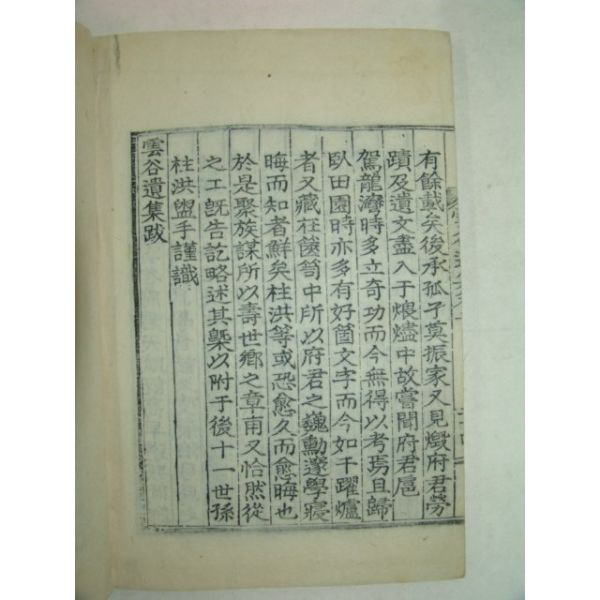 有餘戴矣後承孤孑莫振家又見燬府君勞
蹟及遺文盡入于煨燼中故嘗聞府君扈
駕龍灣時多立奇功而今無得以考焉且歸
臥田園時亦多有好箇文字而今如干躍爐
者又藏在篋笥中所以府君之巍勳邃學寢
晦而知者鮮矣柱洪等或恐愈久而愈晦也
於是聚族謀所以壽世鄉之章甫又恰然從
之工旣告訖略述其槩以附于後十一世孫
柱洪盥手謹識
雲谷遺集跋